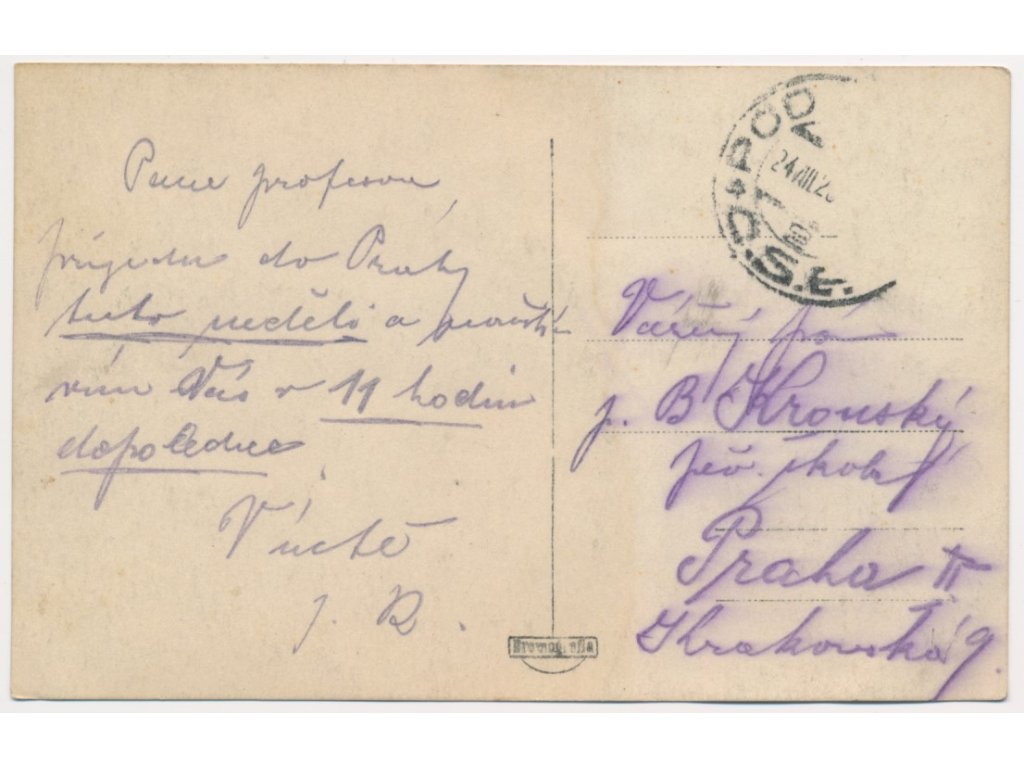 Pane profesore
přijedu do Prahy
tuto neděli a navští-
vím Vás v 11 hodin
dopoledne.
V úctě
J. R.
POD
24/III.2
Č.S.P.
Vážený pán
p. B Kronský
pěv. škola
Praha II
Krakovská 9.
Bromografia